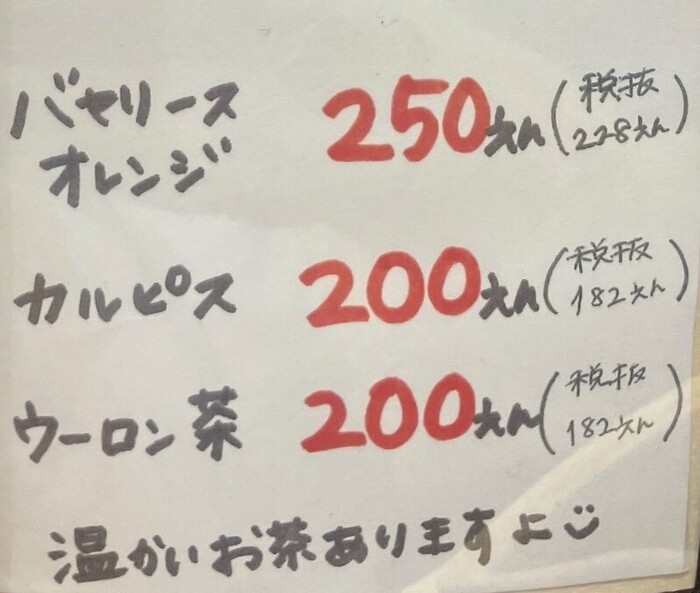 バヤリース
オレンジ
250えん(税抜 228えん)
カルピス 200えん(税抜 182えん)
ウーロン茶 200えん(税抜 182えん)
温かいお茶ありますよ